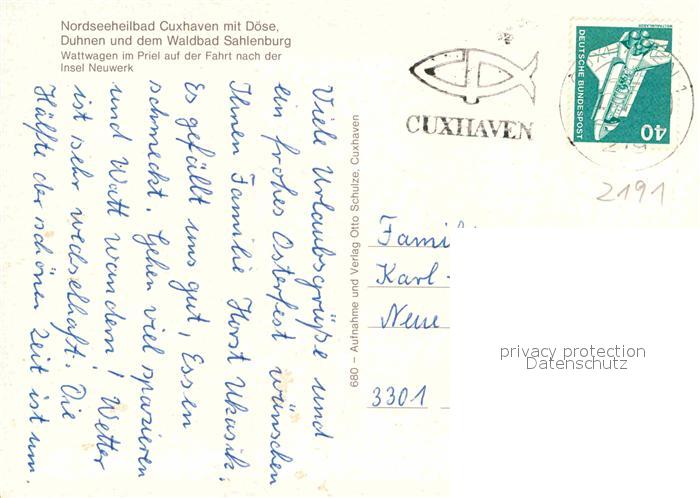 Nordseeheilbad Cuxhaven mit Döse,
Duhnen und dem Waldbad Sahlenburg
Wattwagen im Priel auf der Fahrt nach der
Insel Neuwerk
Viele Urlaubsgrüße und
ein frohes Osterfest wünschen
Ihnen Familie Horst Ukasik.
Es gefällt uns gut, Essen
schmeckt. Gehen viel spazieren
und Watt wandern! Wetter
ist sehr wechselhaft. Die
Hälfte der schönen Zeit ist um.
680 – Aufnahme und Verlag Otto Schulze, Cuxhaven
CUXHAVEN
DEUTSCHE BUNDESPOST
40
2191
Fami
Karl -
Neue
3301
privacy protection
Datenschutz